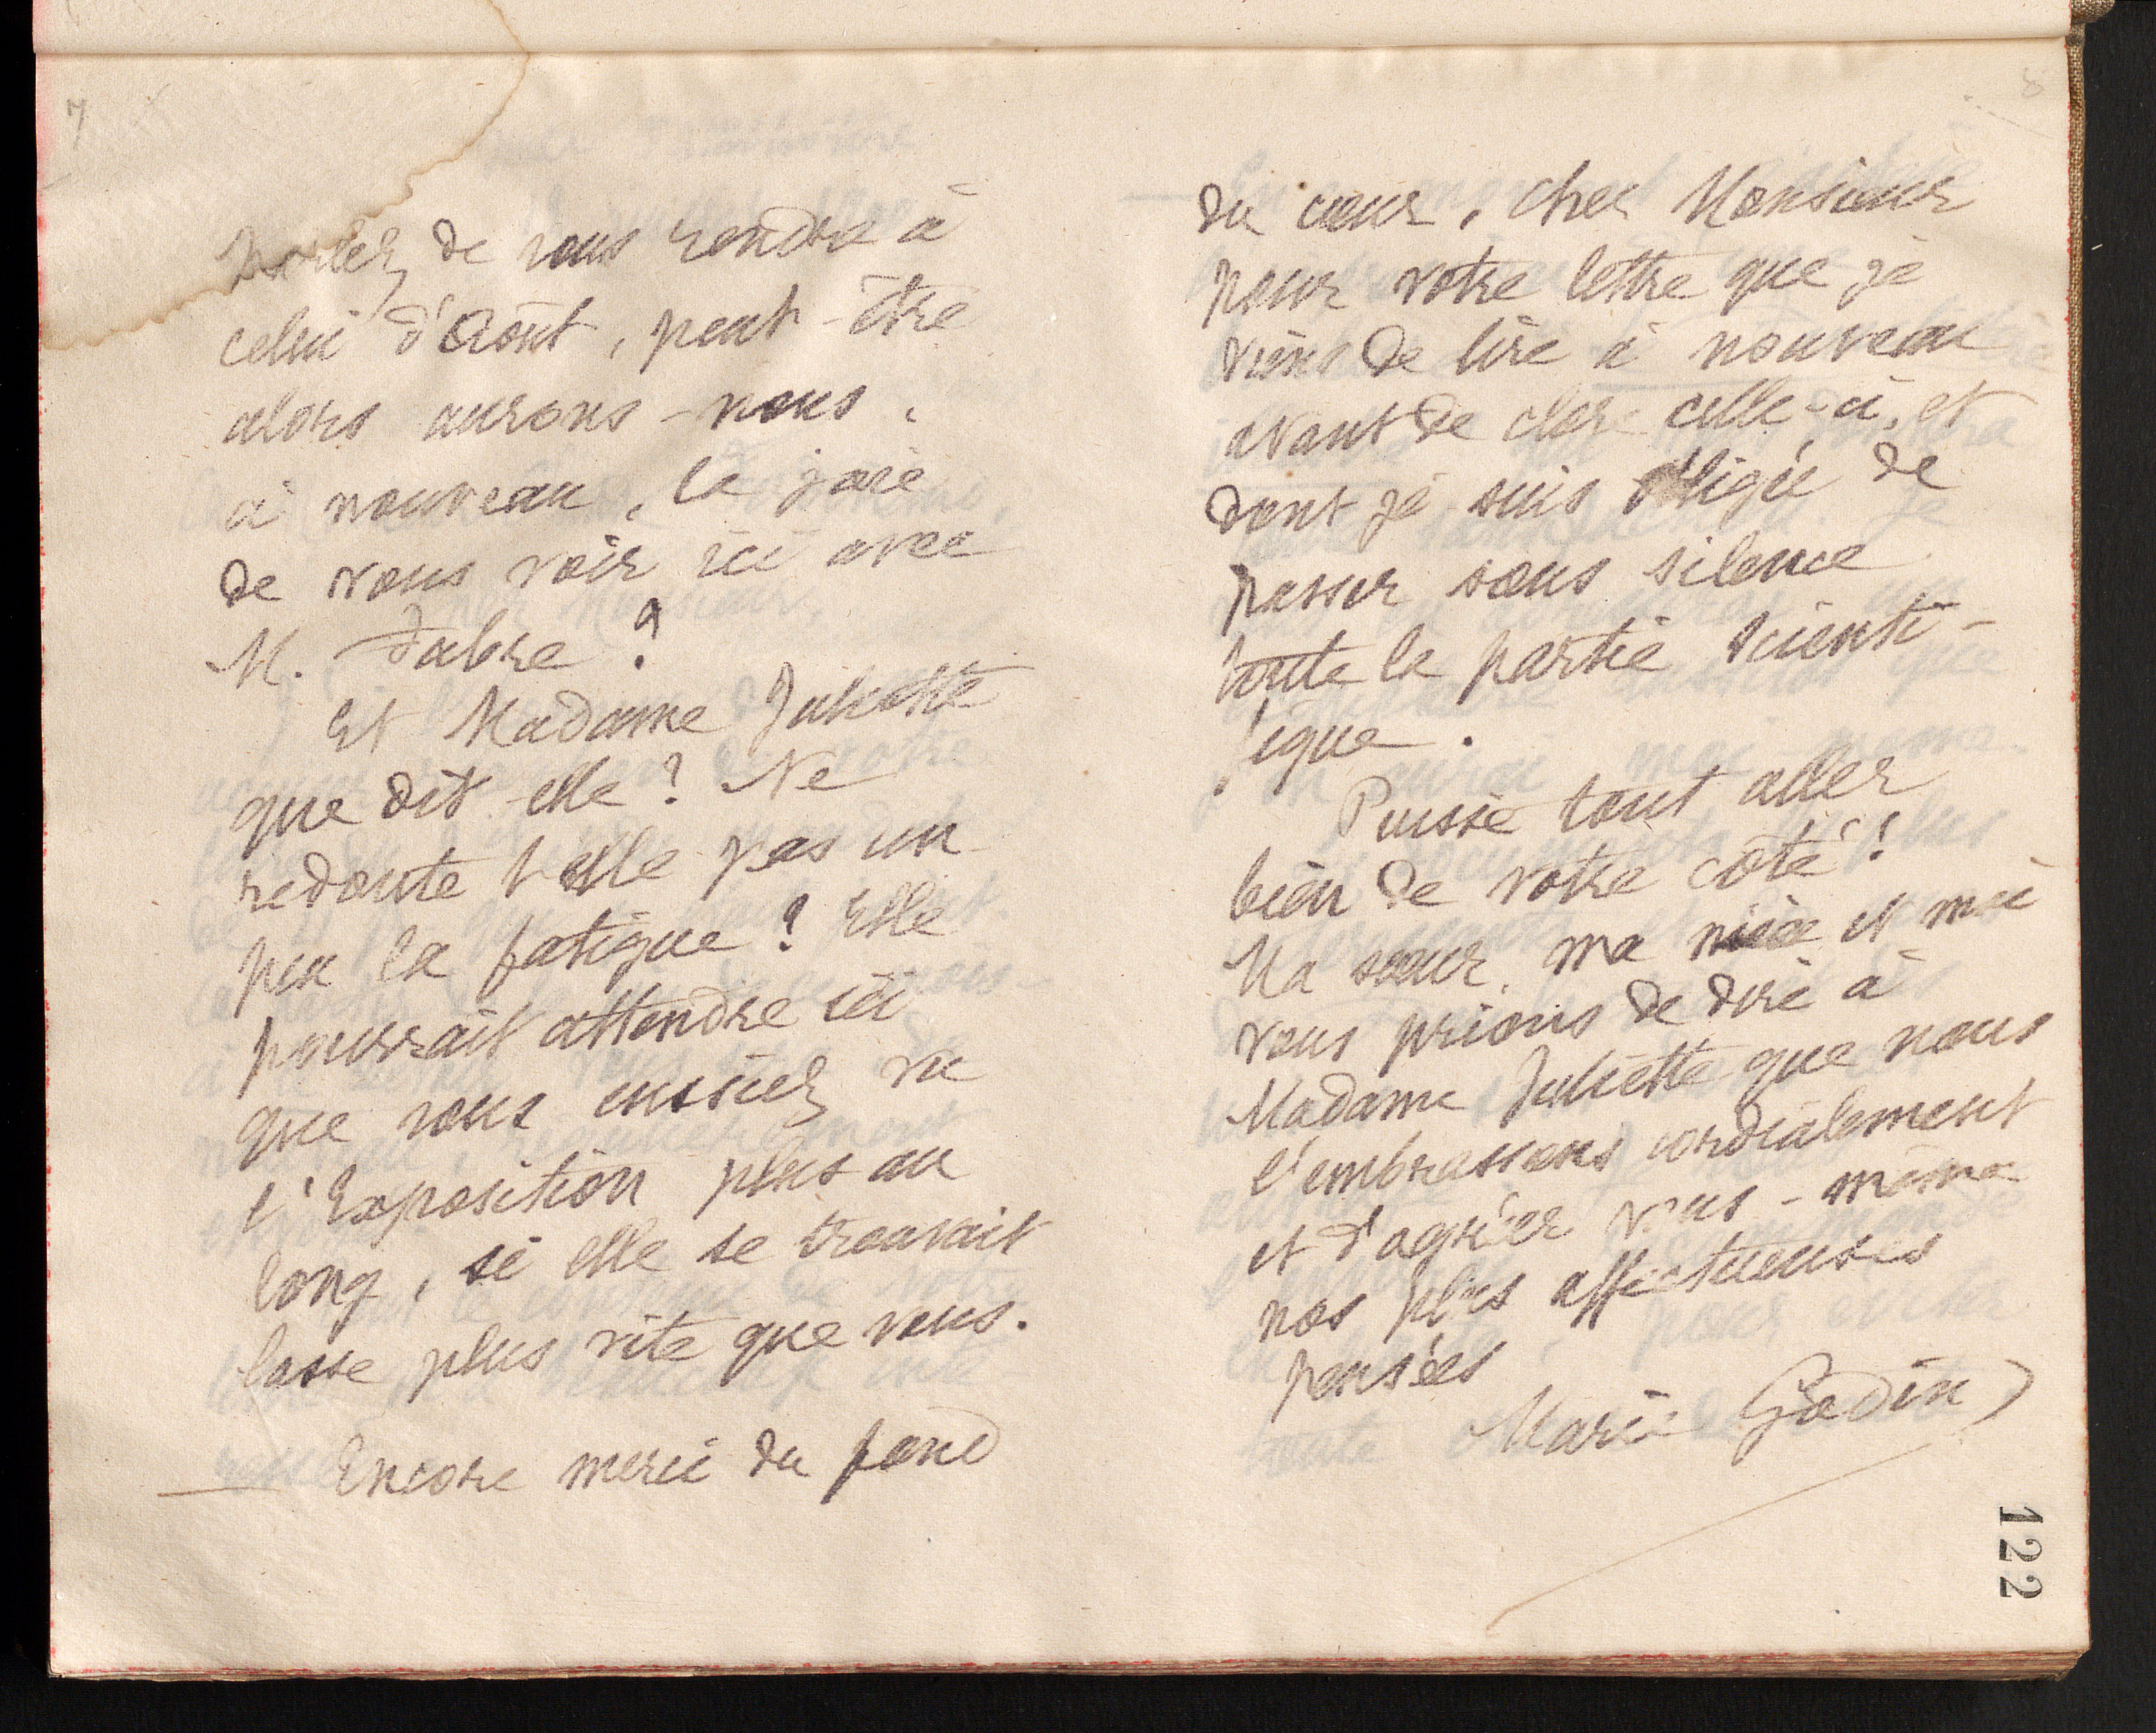 7
portez de vous rendre à
celui d'Août, peut-être
alors aurons-nous,
à nouveau, la joie
de vous voir ici avec
M. Fabre ?
Et Madame Juliette
que dit-elle ? Ne
redoute t elle pas un
peu la fatigue ? Elle
pourrait attendre ici
que vous eussiez vu
l'Exposition plus au
long, si elle se trouvait
lasse plus vite que vous.
Encore merci du fond
8
du cœur, cher Monsieur
pour votre lettre que je
viens de lire à nouveau
avant de clore celle-ci, et
dont je suis obligée de
passer sous silence
toute la partie scienti-
fique.
Puisse tout aller
bien de votre côté !
Ma sœur, ma nièce et moi
vous prions de dire à
Madame Juliette que nous
l'embrassons cordialement
et d'agréer vous-même
nos plus affectueuses
pensées
Marie Godin
122